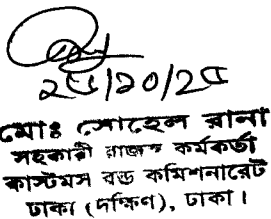 ২৫/১০/২৫
মোঃ সোহেল রানা
সহকারী রাজস্ব কর্মকর্তা
কাস্টমস বন্ড কমিশনারেট
ঢাকা (দক্ষিণ), ঢাকা।